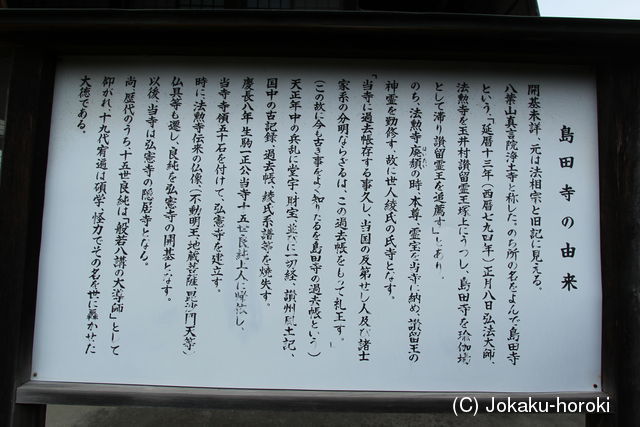 島田寺の由来
開基未詳、元は法相宗と旧記に見える。
八葉山真言院浄土寺と称した。のち所の名をよんで島田寺
という。「延暦十三年(西暦七九四年)正月八日弘法大師、
法勲寺を玉井村讃留霊王塚上にうつし、島田寺を瑜伽壇
として滞り讃留霊王を追薦す」とあり。
のち、法勲寺廃頽の時、本尊、霊宝を当寺に納め、讃留王の
神霊を勤修す、故に世人綾氏の氏寺となす。
「当寺に過去帳存する事久し、当国の及第せし人及び諸士
家系の分明ならざるは、この過去帳をもって礼王す。
(この故に今も古き事をよく知りたるを島田寺の過去帳という)
天正年中の兵乱に堂宇、財宝、並びに一切経、讃州風土記、
国中の古記録、過去帳、綾氏系譜等を焼失す。
慶長八年、生駒一正公当寺十五世良純上人に帰依し、
当寺寺領五十石を付けて、弘憲寺を建立す。
時に、法勲寺伝来の仏像、(不動明王、地蔵菩薩、毘沙門天等)
仏具等も遷し、良純を弘憲寺の開基となす。
以後、当寺は弘憲寺の隠居寺となる。
尚、歴代のうち、十五世良純は「般若八講の大導師」として
仰がれ、十九代宥遍は碩学、怪力でその名を世に轟かせた
大徳である。
(C) Jokaku-horoki